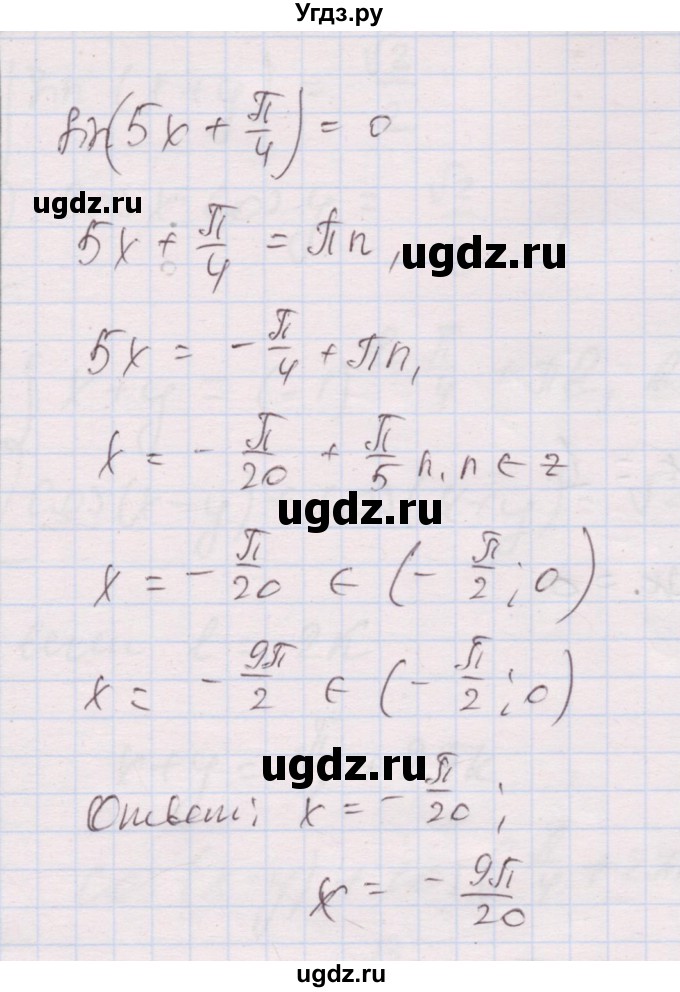 Угдз.ру
sin(5x + π/4) = 0
ugdz.ru
5x + π/4 = πn,
ugdz.ru
5x = - π/4 + πn,
x = - π/20 + π/5 n, n ∈ z
ugdz.ru
x = - π/20 ∈ (- π/2; 0)
x = - 9π/2 ∈ (- π/2; 0)
ugdz.ru
Ответ: x = - π/20;
x = - 9π/20
ugdz.ru